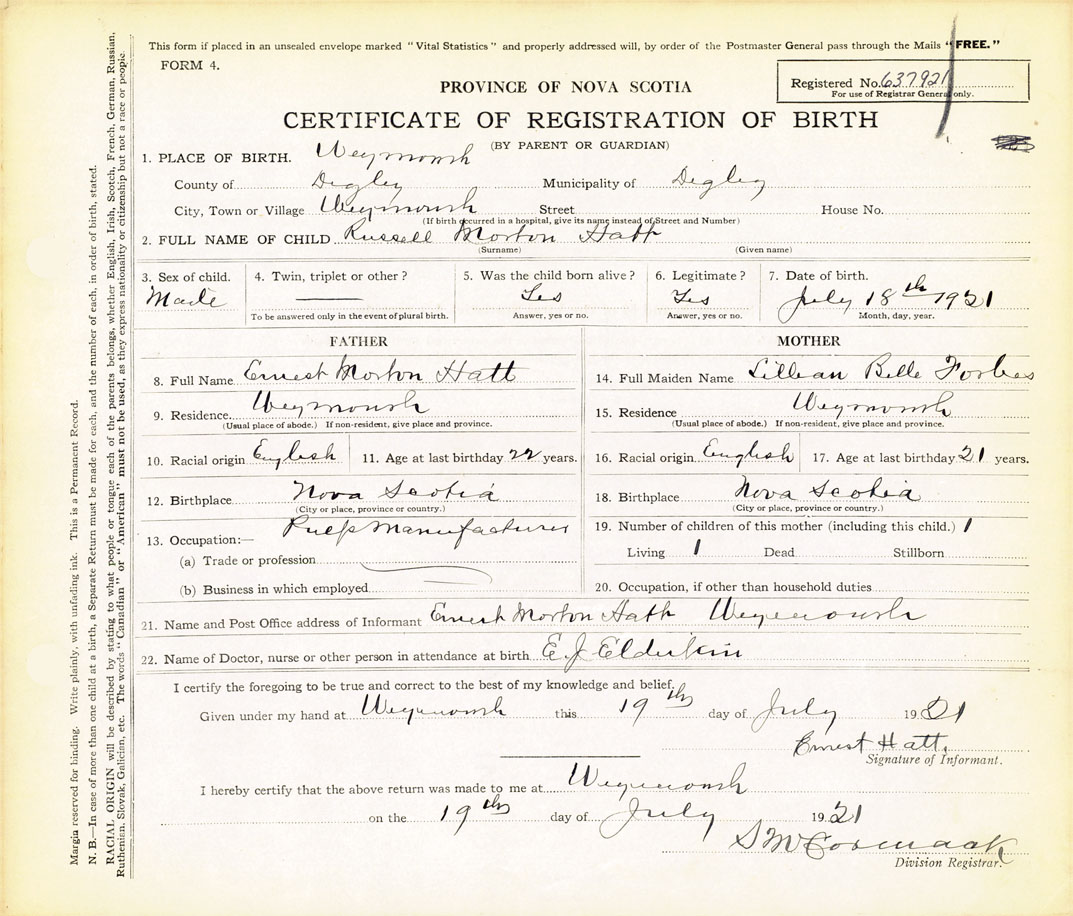 This form if placed in an unsealed envelope marked "Vital Statistics" and properly addressed will, by order of the Postmaster General pass through the Mails "FREE."
FORM 4.
Registered No. 637921
For use of Registrar General only.
PROVINCE OF NOVA SCOTIA
CERTIFICATE OF REGISTRATION OF BIRTH
(BY PARENT OR GUARDIAN)
1. PLACE OF BIRTH. Weymouth
County of Digby Municipality of Digby
City, Town or Village Weymouth Street House No.
(If birth occurred in a hospital, give its name instead of Street and Number)
2. FULL NAME OF CHILD Russell Morton Hatt
(Surname) (Given name)
3. Sex of child. 4. Twin, triplet or other? 5. Was the child born alive? 6. Legitimate? 7. Date of birth.
Male Yes Yes July 18th 1921
To be answered only in the event of plural birth. Answer, yes or no. Answer, yes or no. Month, day, year.
FATHER MOTHER
8. Full Name Ernest Morton Hatt 14. Full Maiden Name Lillian Belle Forbes
9. Residence. Weymouth 15. Residence Weymouth
(Usual place of abode.) If non-resident, give place and province. (Usual place of abode.) If non-resident, give place and province.
10. Racial origin English 11. Age at last birthday 22 years. 16. Racial origin English 17. Age at last birthday 21 years.
12. Birthplace Nova Scotia 18. Birthplace Nova Scotia
(City or place, province or country.) (City or place, province or country.)
13. Occupation:— Pulp Manufacturer 19. Number of children of this mother (including this child.) 1
(a) Trade or profession Living 1 Dead Stillborn
(b) Business in which employed 20. Occupation, if other than household duties
21. Name and Post Office address of Informant Ernest Morton Hatt Weymouth
22. Name of Doctor, nurse or other person in attendance at birth E J Elderkin
I certify the foregoing to be true and correct to the best of my knowledge and belief.
Given under my hand at Weymouth this 19th day of July 1921
Ernest Hatt.
Signature of Informant.
I hereby certify that the above return was made to me at Weymouth
on the 19th day of July 1921
S McCormack
Division Registrar.
Margin reserved for binding. Write plainly, with unfading ink. This is a Permanent Record.
N. B.—In case of more than one child at a birth, a Separate Return must be made for each, and the number of each, in order of birth, stated.
RACIAL ORIGIN will be described by stating to what people or tongue each of the parents belongs, whether English, Irish, Scotch, French, German, Russian,
Ruthenian, Slovak, Galician, etc. The words "Canadian" or "American" must not be used, as they express nationality or citizenship but not a race or people.